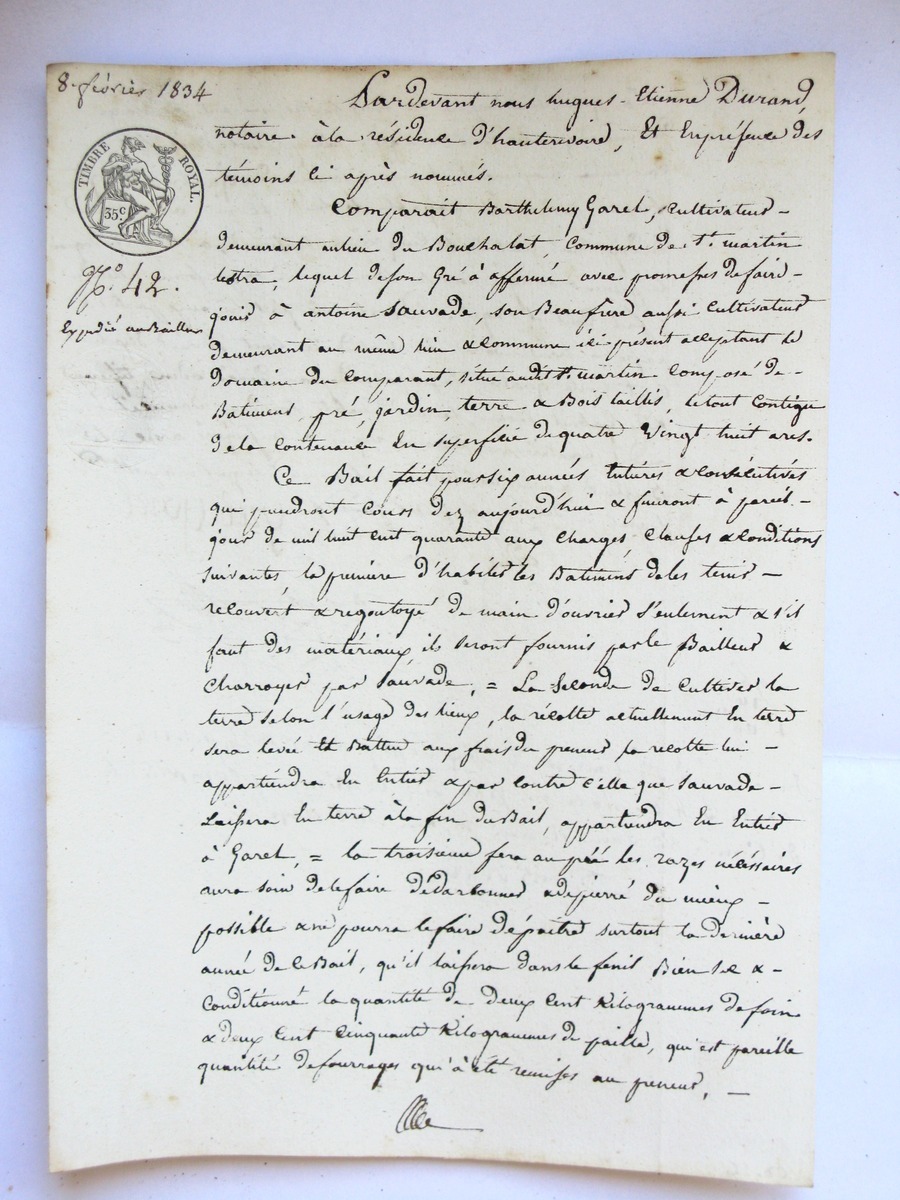 8. février 1834
TIMBRE ROYAL.
35.c
N.o 42.
Expédié au Bailleur
Pardevant nous hugues-Etienne Durand
notaire à la résidence d'hauterivoire, Et En présence des
témoins ci après nommés.
Comparait Barthelemy Garel, Cultivateur
demeurant au lieu du Bouchalat, Commune de St. martin
lestra, lequel de son Gré à affermé avec promesses de faire
jouir à antoine Sauvade, son Beaufrère aussi Cultivateur
demeurant au même lieu & commune ici présent acceptant le
Domaine du Comparant, situé audit St. martin Composé de
Batiment, pré, jardin, terre & Bois taillis, le tout Contigu
de la Contenance En superficie de quatre Vingt huit ares.
Ce Bail fait pour six années Entières & Consécutives
qui prendront Cours dez aujourd'hui & finiront à pareil
jour de mil huit Cent quarante aux Charges Clauses & Conditions
suivantes, la première d'habiter les Batimens de les tenir
recouvert & regoutoyé de main d'ouvrier Seulement & s'il
faut des matériaux ils seront fournis par le Bailleur &
Charroyer par Sauvade, = La Seconde de Cultiver la
terre selon l'usage des lieux, la récolte actuellement En terre
sera levée Et Battue aux frais du preneur la récolte lui
appartiendra En Entier & par Contre Celle que Sauvade
Laissera En terre à la fin du Bail, appartiendra En Entier
à Garel, = la troisième fera au pré les razes nécéssaires
aura soin de le faire dédarbonner & depierré du mieux
possible & ne pourra le faire dépaitre surtout la dernière
année de ce Bail, qu'il laissera dans le fenil Bien sec &
Conditionné la quantité de deux Cent Kilogrammes de foin
& deux Cent Cinquante Kilogrammes de paille, qui est pareille
quantité de fourrages qui à été remises au preneur,